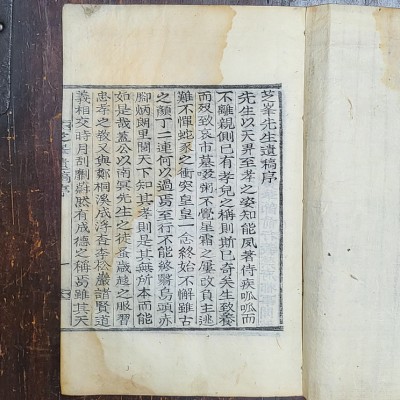 芝峯先生遺稿序
先生以天畀至孝之姿知能夙著侍疾呱呱而
不離親側已有孝兒之稱則斯已奇矣生致養
而歿致哀市墓啜粥不覺星霜之屢改負主逃
難不憚蛇豕之衝突皇皇一念終始不懈雖古
之顔丁二連何以過焉至行不能終翳烏頭亦
腳炳朗里閭天下知其孝則是其無所本而能
如是哉蓋公以南冥先生之徒蚤歲越之服習
忠孝之敎又與鄭桐溪成浮查李松巖諸賢道
義相交時月刮劘蔚然有成德之稱焉雖其天
芝峯遺稿序
一